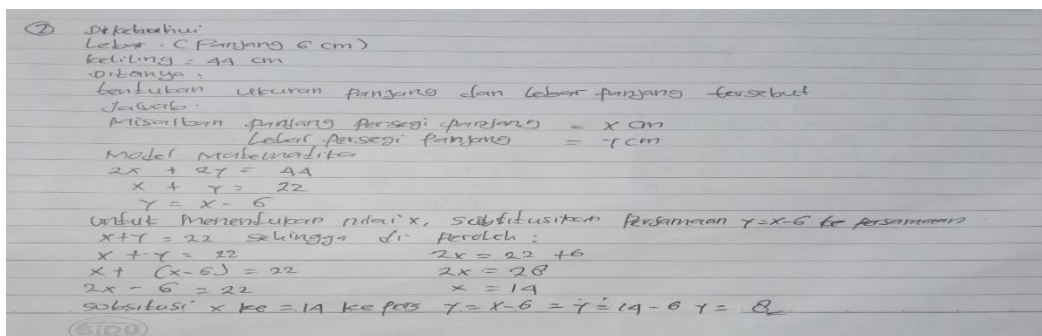 ② Diketahui
Lebar = (Panjang 6 cm)
keliling = 44 cm
Ditanya :
tentukan ukuran panjang dan lebar panjang tersebut
Jawab.
Misalkan panjang persegi panjang = x cm
Lebar persegi panjang = y cm
Model Matematika
2x + 2y = 44
x + y = 22
y = x - 6
untuk menentukan nilai x, subtitusikan Persamaan y=x-6 ke persamaan
x+y = 22 sehingga di peroleh :
x + y = 22 2x = 22 +6
x + (x-6) = 22 2x = 28
2x - 6 = 22 x = 14
sobsitusi x ke = 14 ke pers y = x-6 = y = 14 - 6 y = 8
SIDU